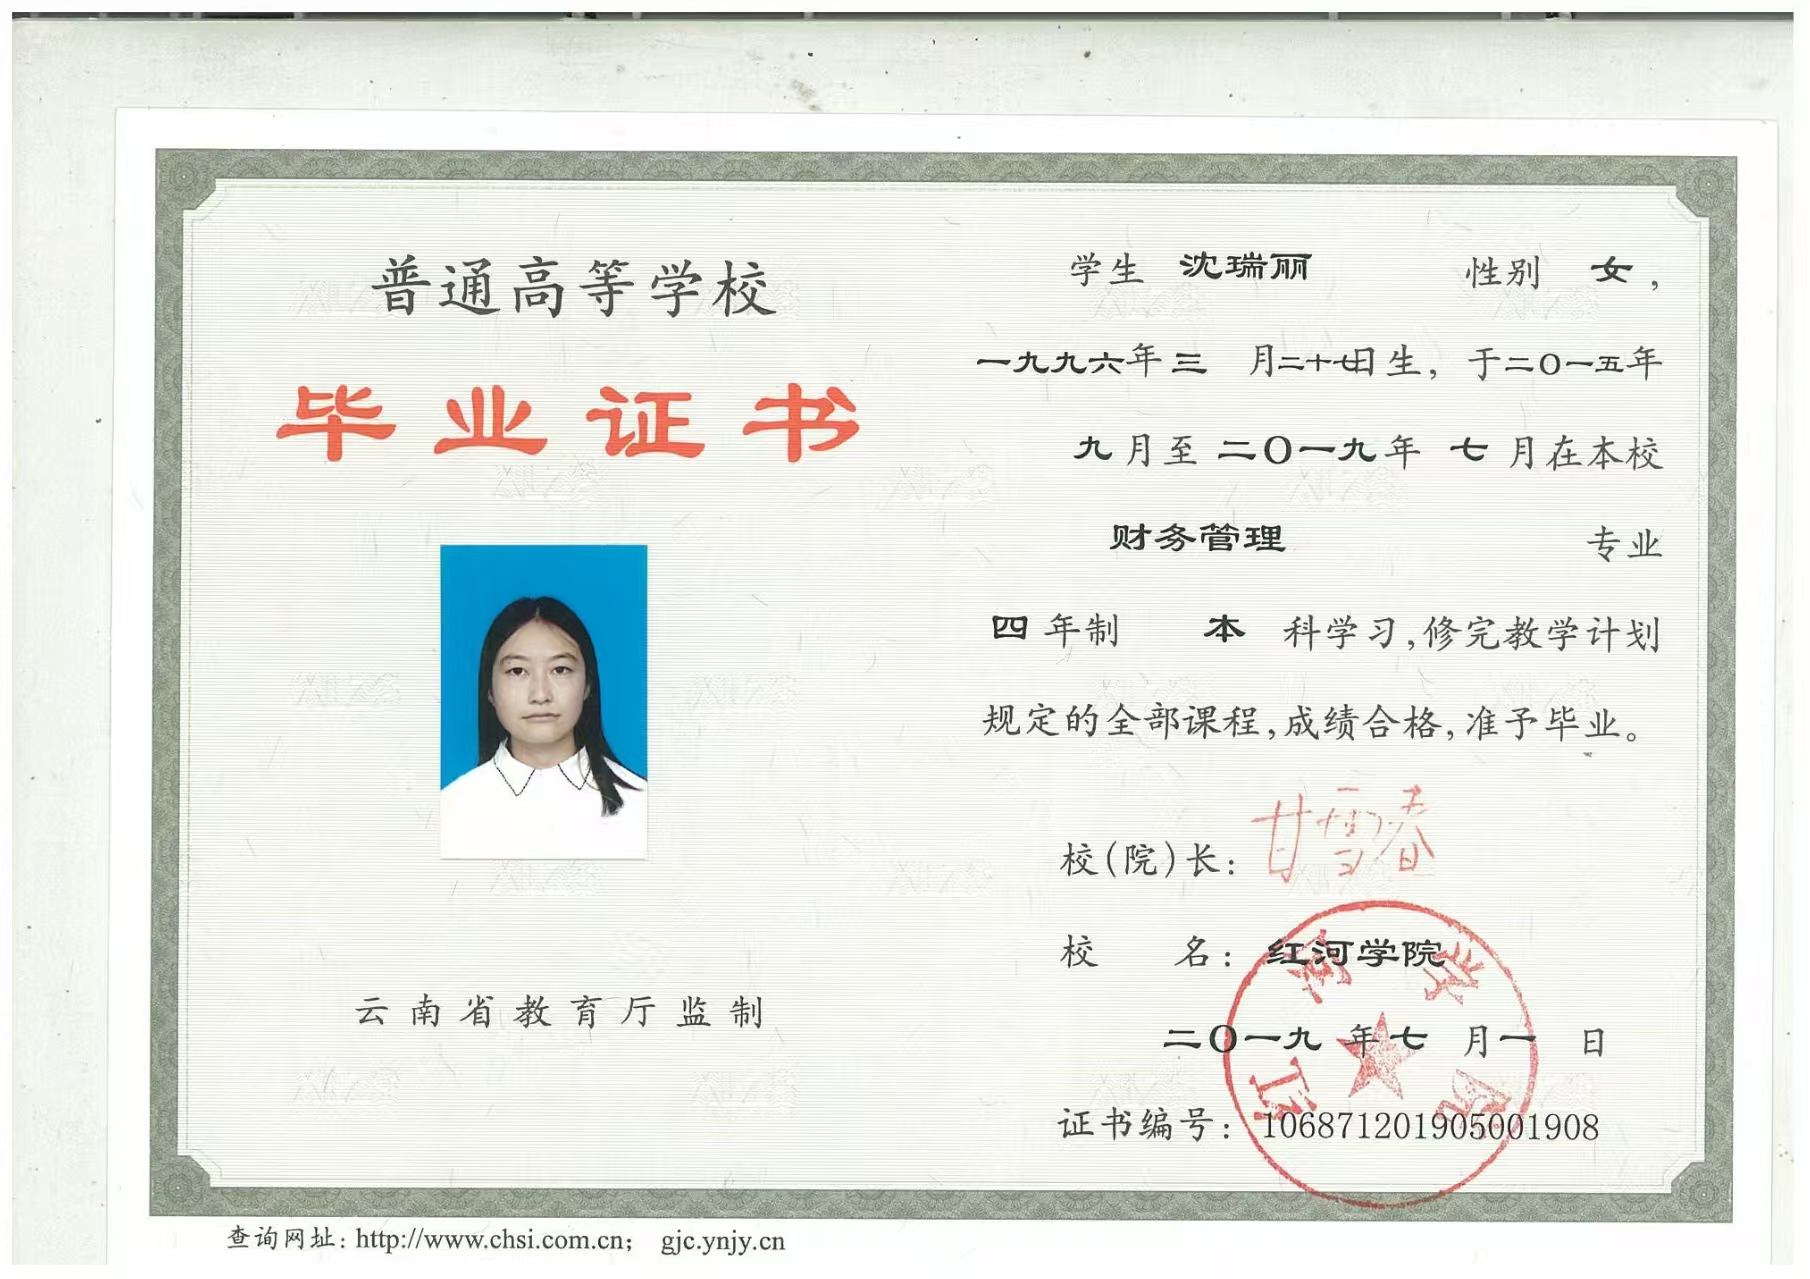 普通高等学校
毕业证书
云南省教育厅监制
学生 沈瑞丽 性别 女,
一九九六年三 月二十七日生, 于二〇一五年
九月至 二〇一九年 七 月在本校
财务管理 专业
四 年制 本 科学习,修完教学计划
规定的全部课程,成绩合格,准予毕业。
校(院)长: 甘雪春
校 名: 红河学院
二〇一九 年七 月一 日
证书编号: 106871201905001908
红河学院
查询网址: http://www.chsi.com.cn; gjc.ynjy.cn